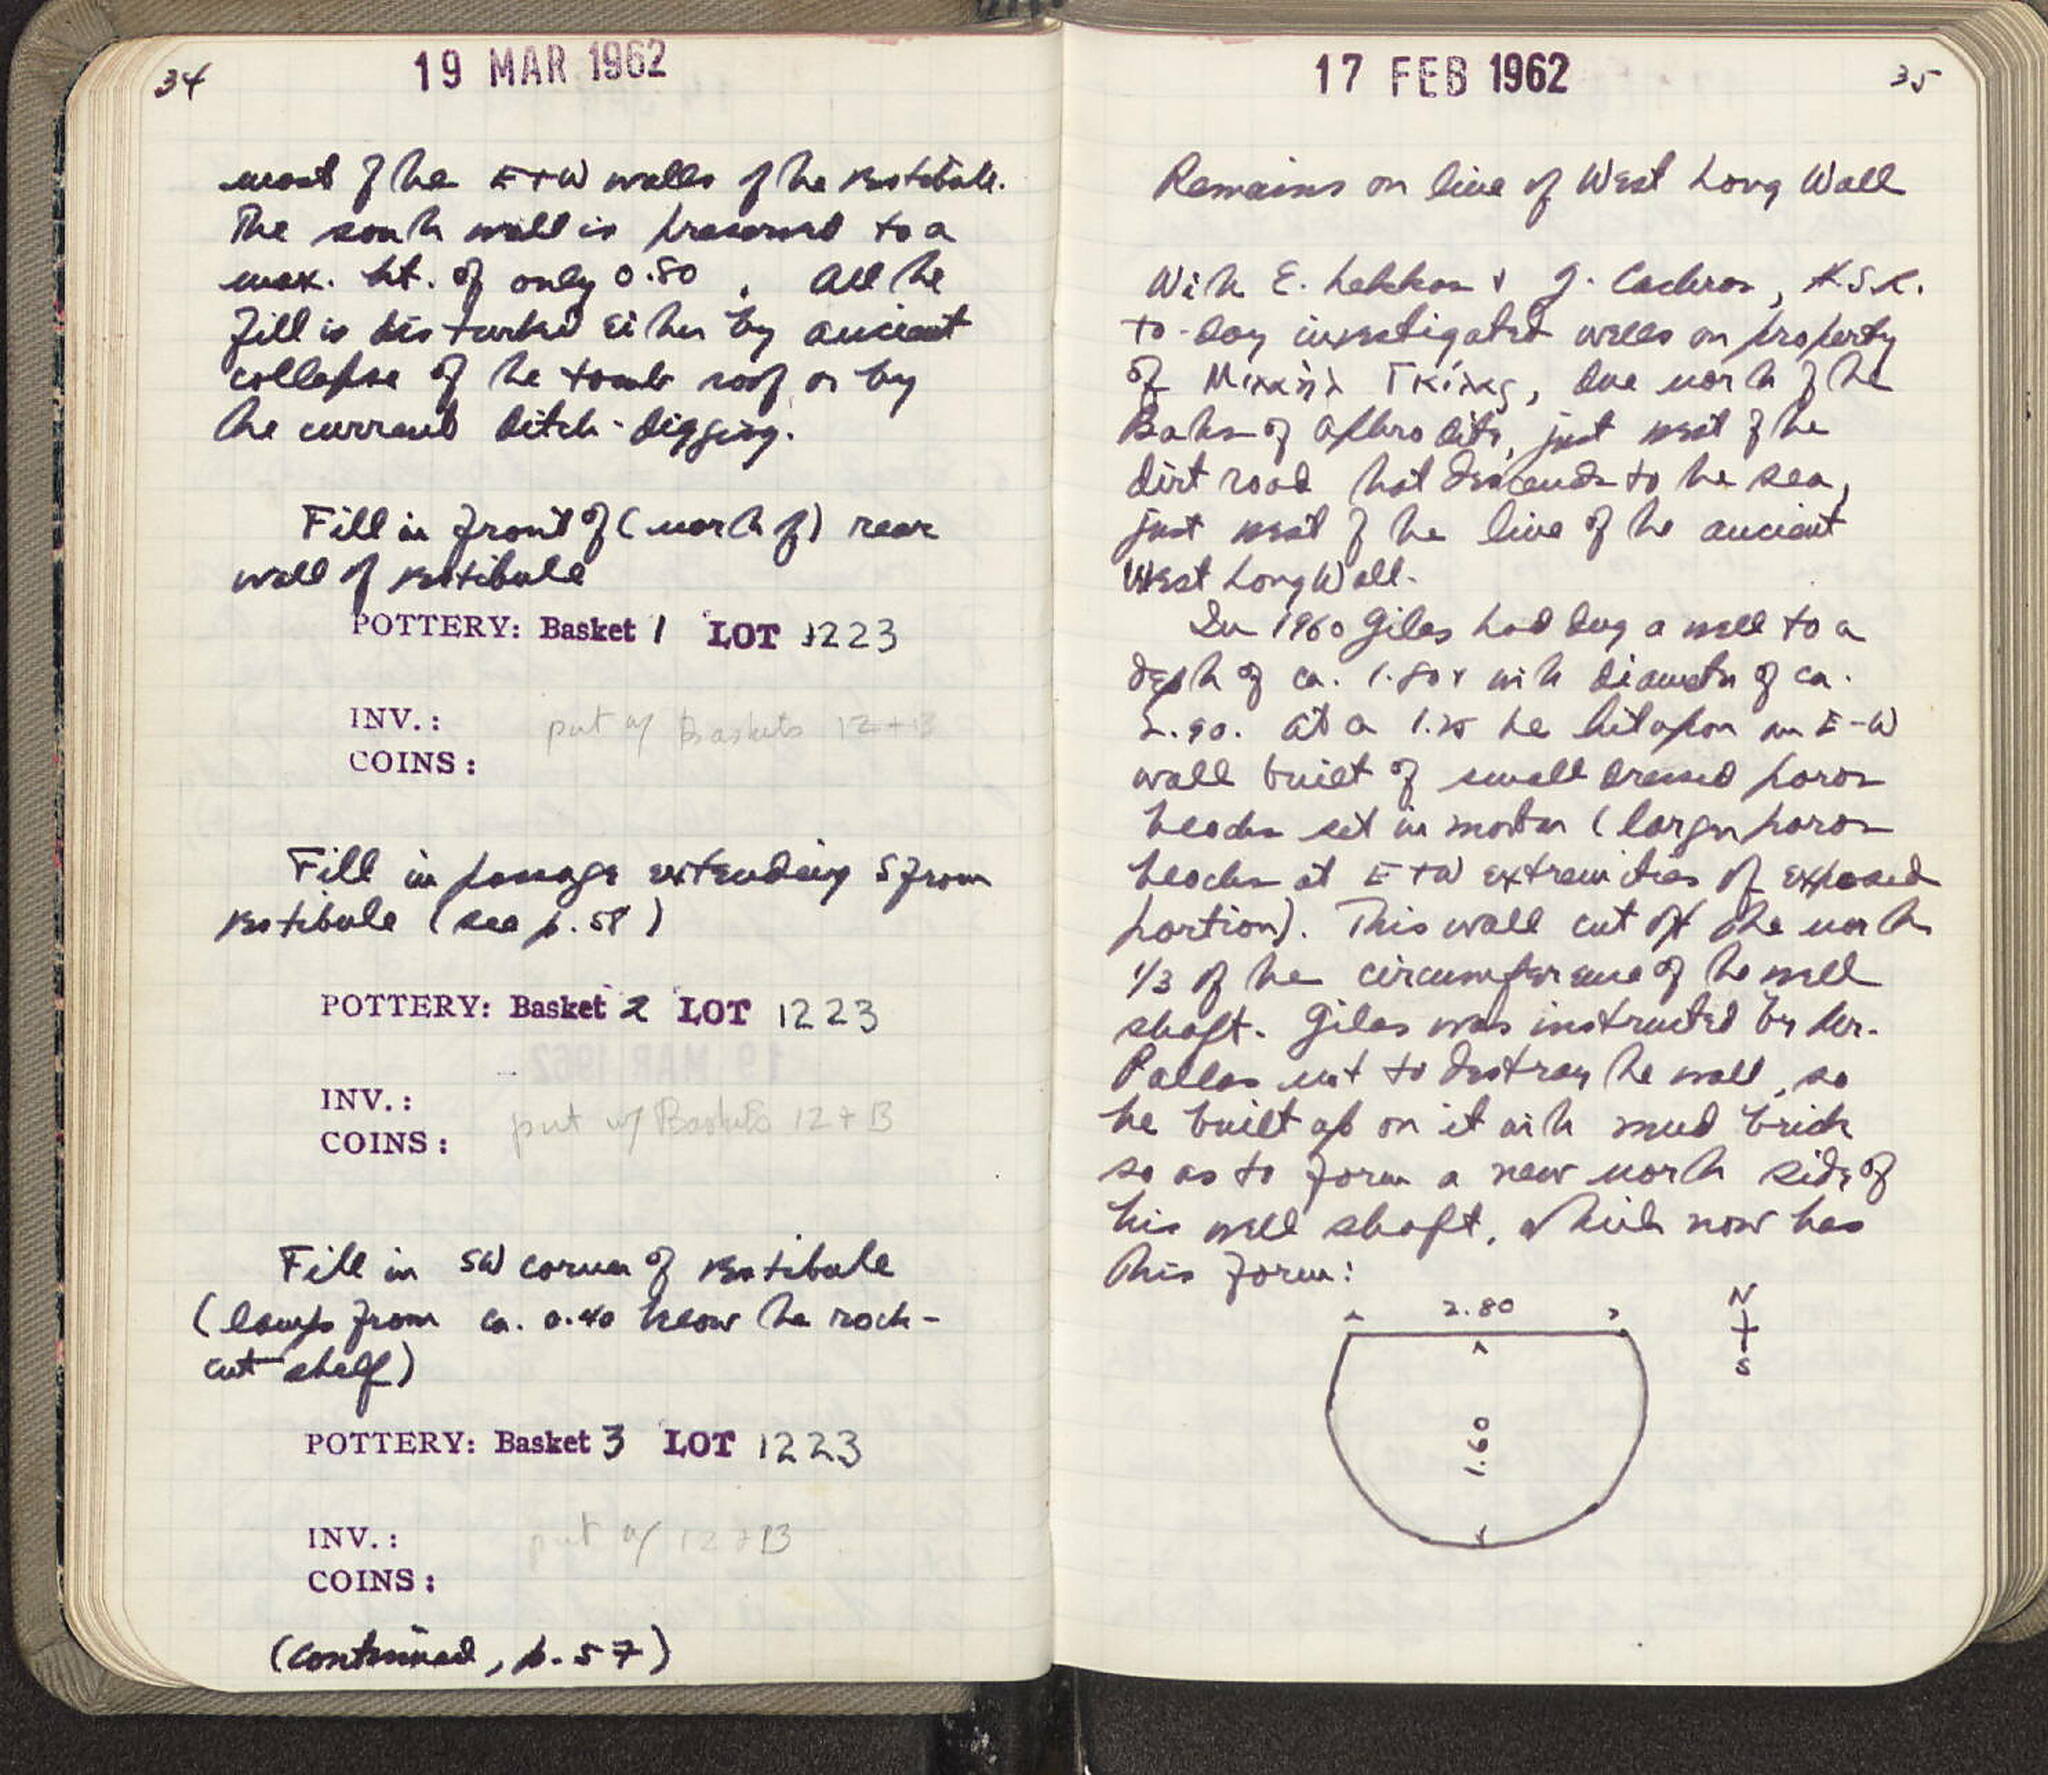 34
19 MAR 1962
most of the E + W walls of the vestibule.
The south wall is preserved to a
max. ht. of only 0.80. All the
fill is disturbed either by ancient
collapse of the tomb roof or by
the current ditch-digging.
Fill in front of (north of) rear
wall of vestibule
POTTERY: Basket 1 LOT 1223
INV.: put w/ Baskets 12 + 13
COINS:
Fill in passage extending S from
vestibule (see p. 58)
POTTERY: Basket 2 LOT 1223
INV.:
put w/ Baskets 12 + 13
COINS:
Fill in SW corner of vestibule
(lamps from ca. 0.40 below the rock-
cut shelf)
POTTERY: Basket 3 LOT 1223
INV.: put w/ 12 + 13
COINS:
(continued, p. 57)
17 FEB 1962
35
Remains on line of West Long Wall
With E. & J. , H.S.R.
to-day investigated wells on property
of Μιχαὴλ Γκίλας, due north of the
Baths of Aphrodite, just west of the
dirt road that descends to the sea,
just west of the line of the ancient
West Long Wall.
In 1960 Gilas had dug a well to a
depth of ca. 1.80 with diameter of ca.
2.90. At a 1.25 he hit upon an E-W
wall built of small dressed poros
blocks set in mortar (larger poros
blocks at E + W extremities of exposed
portion). This wall cut off the north
1/3 of the circumference of the well
shaft. Gilas was instructed by Mr.
Pallas not to destroy the wall, so
he built up on it with mud brick
so as to form a new north side of
his well shaft, which now has
this form:
2.80
N
S
1.60